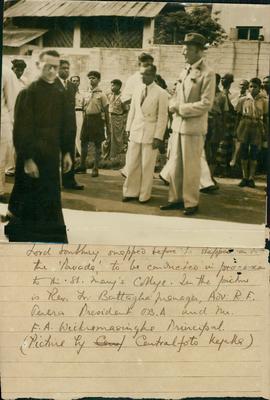 Lord Soulbury snapped before he stepped on to
the 'Pavada' to be conducted in procession
to the St. Mary's College. In the picture
is Rev. Fr Battaglia manager, Adv. R. F.
Perera President O.B.A and Mr.
F. A. Wickramasinghe Principal.
(Picture by Centralfoto Kegalle)